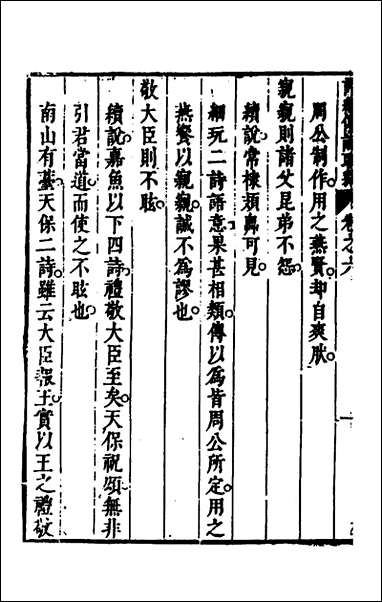 卷之六
周公制作用之燕賢却自爽肰
親親則諸父昆弟不怨
續說常棣類鼻可見
細玩二詩語意果甚相類傳以為皆周公所定用之
燕饗以親親誠不為謬也
敬大臣則不眩
續說嘉魚以下四詩禮敬大臣至矣天保祝頌無非
引君當道而使之不眩也
南山有臺天保二詩雖云大臣報王實以王之禮敬